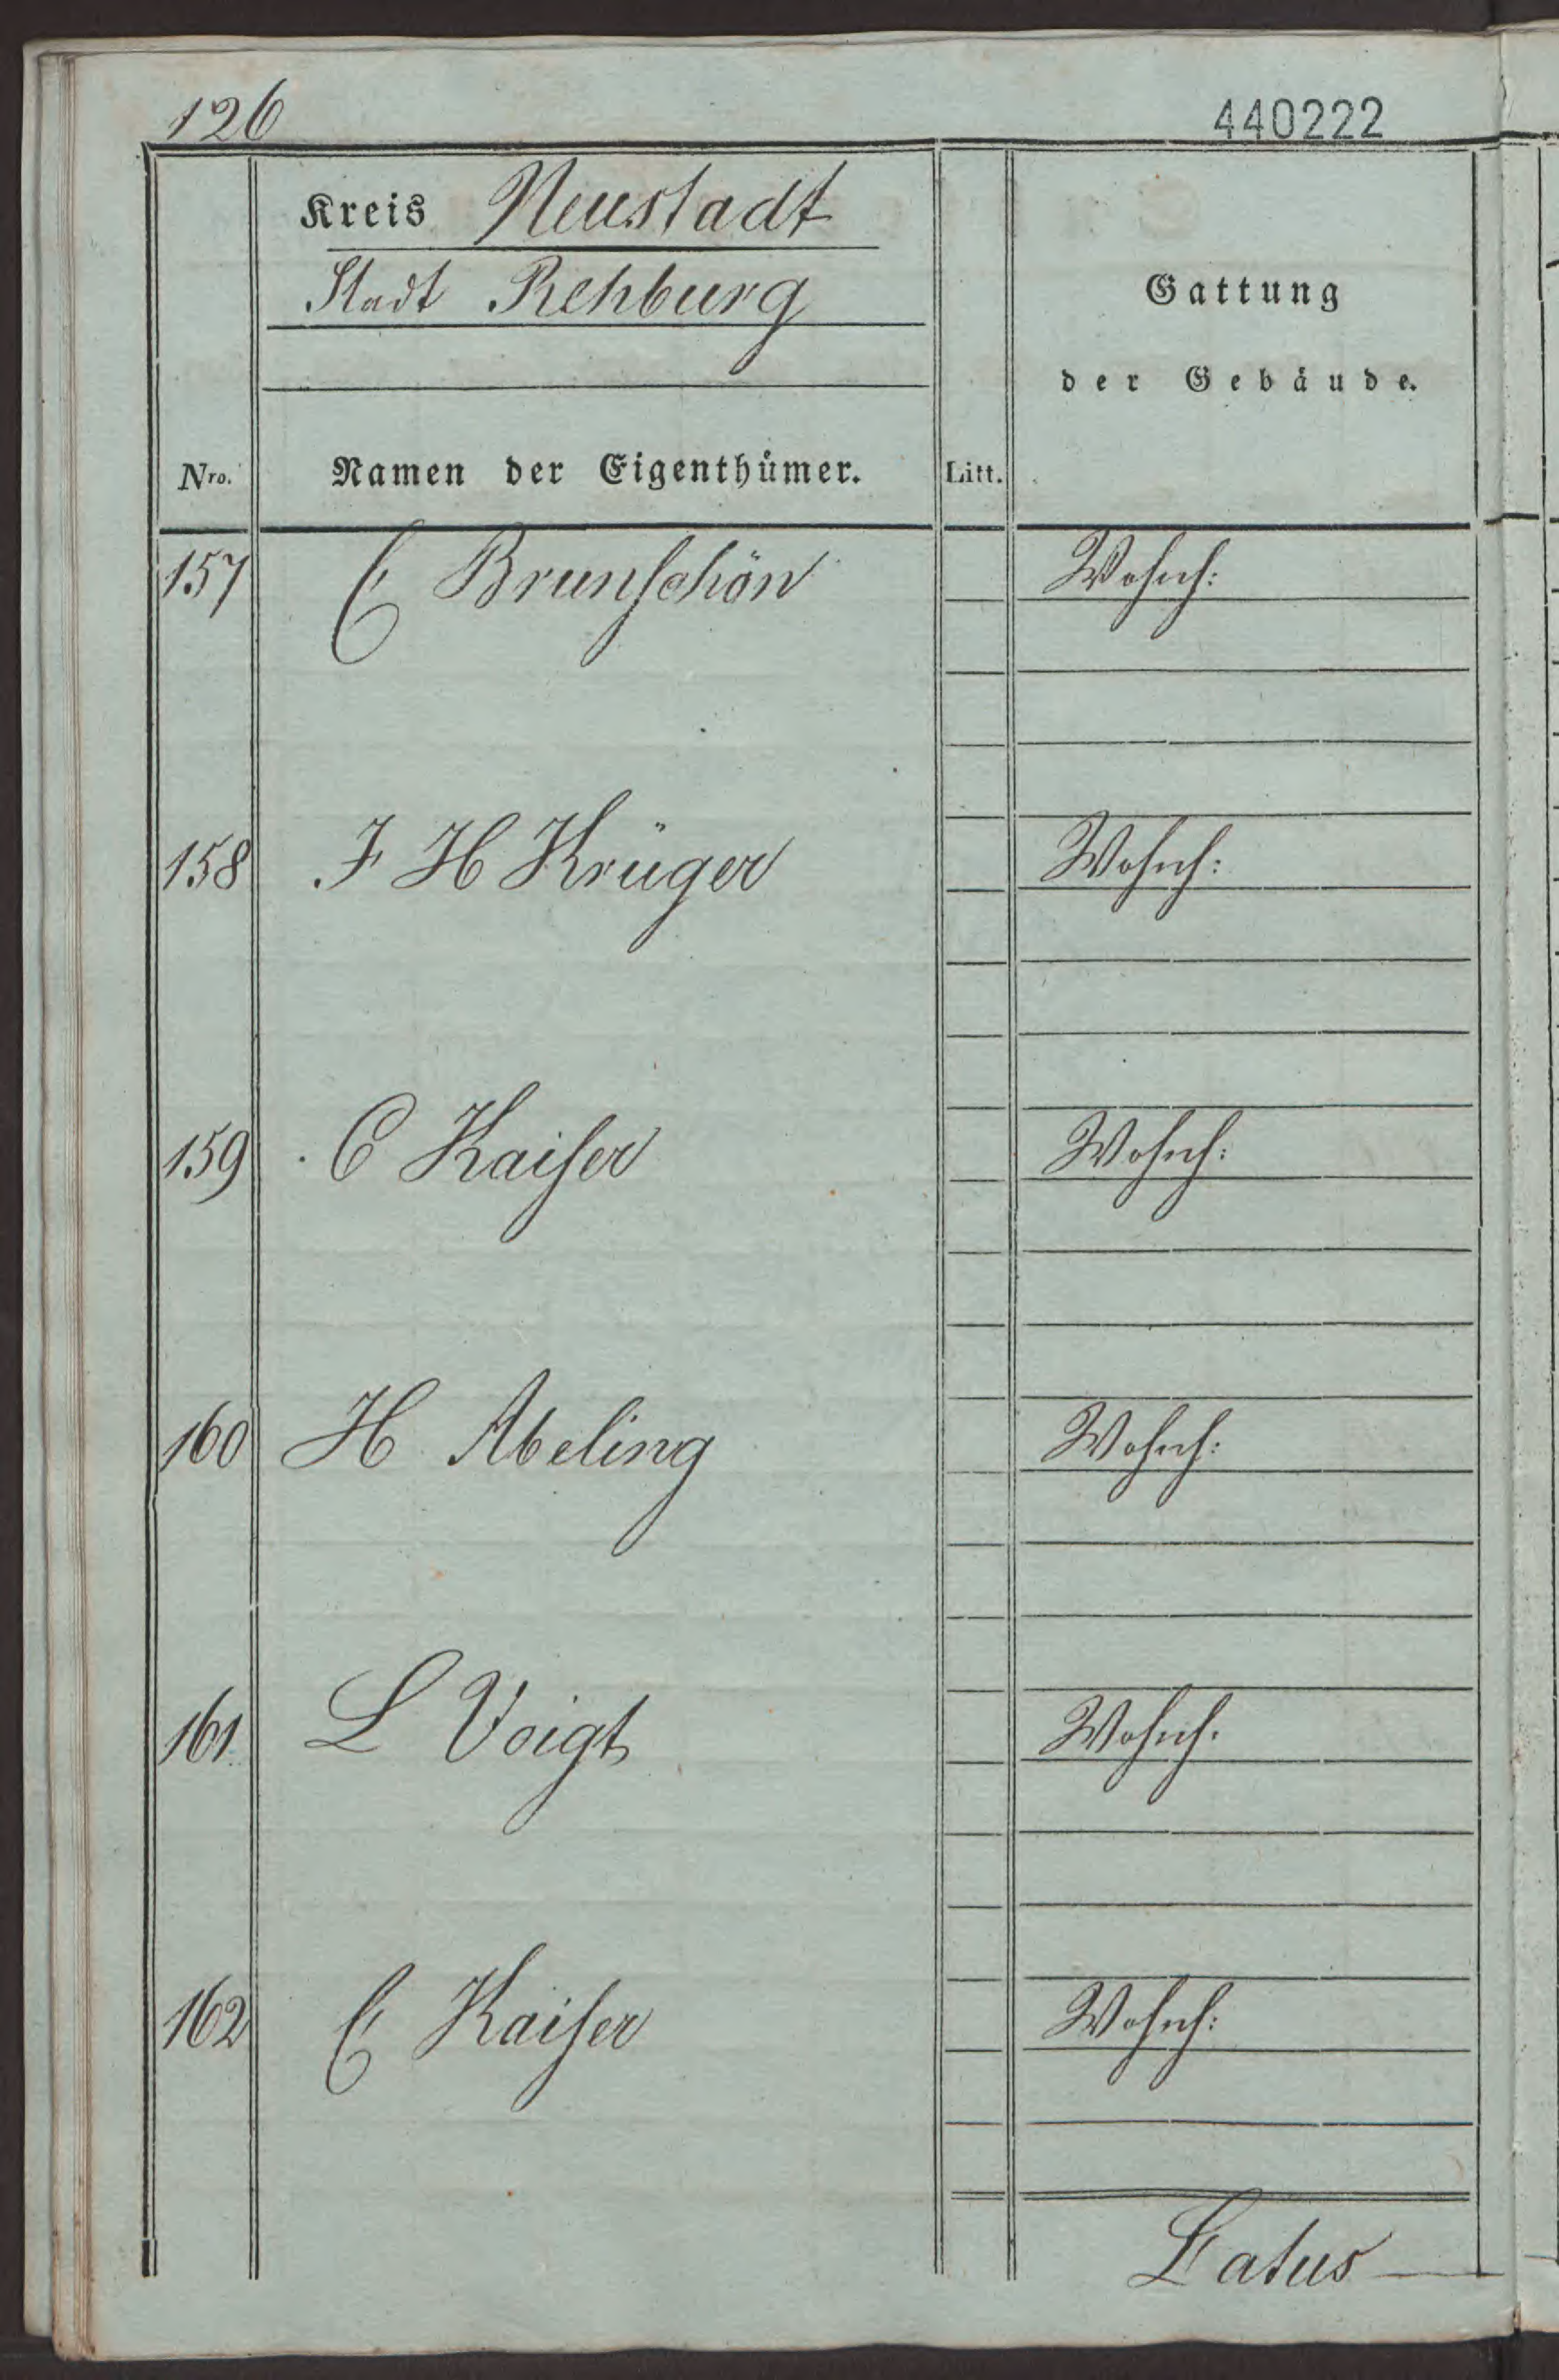 126
440222
Kreis Neustadt
Stadt Rehburg
Gattung
der Gebäude.
Nro. Namen der Eigenthümer. Litt.
157 C Brunschön Wohnh:
158 F H Krüger Wohnh:
159 C Kaiser Wohnh:
160 H Abeling Wohnh:
161 L Voigt Wohnh.
162 C Kaiser Wohnh:
Latus